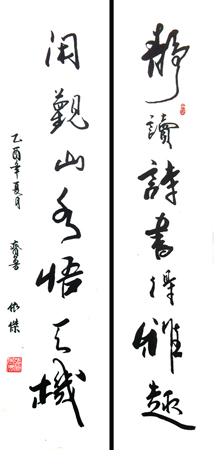 靜讀詩書得雅趣
閑觀山水悟天機
乙酉年夏月
齊魯